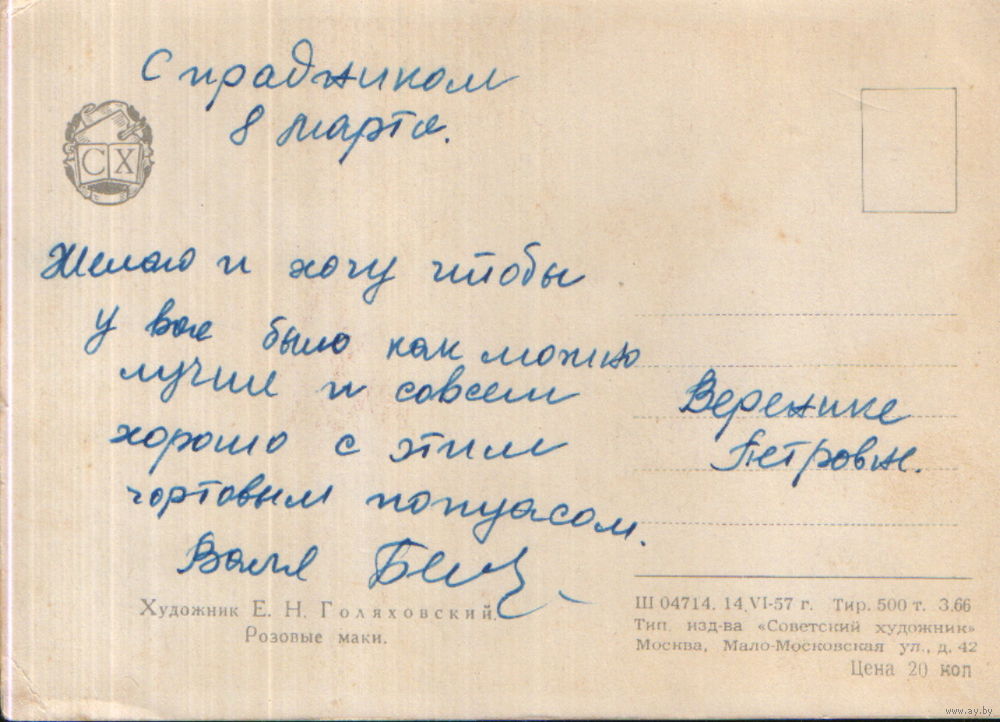 С праздником
8 марта.
СХ
Желаю и хочу чтобы
у вас было как можно
лучше и совсем
хорошо с этим
чортовым попуасом.
Валя
Веренике
Петровн.
Художник Е. Н. Голяховский.
Розовые маки.
Ш 04714. 14.VI-57 г. Тир. 500 т. З.66
Тип. изд-ва «Советский художник»
Москва, Мало-Московская ул., д. 42
Цена 20 коп
www.ay.by